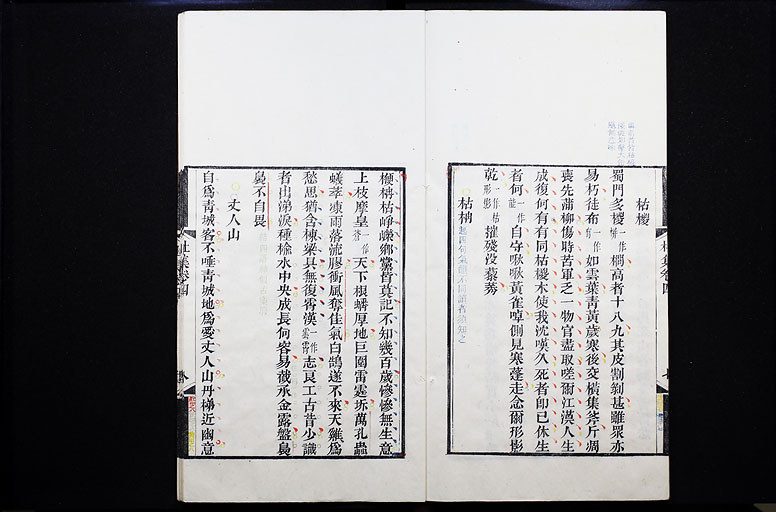 枯椶
蜀門多椶一作栟櫚高者十八九其皮割剝甚雖眾亦
易朽徒布一作有如雲葉青黃歲寒後交橫集斧斤凋
喪先蒲柳傷時苦軍乏一物官盡取嗟爾江漢人生
成復何有有同枯椶木使我沈嘆久死者即已休生
者何一作能自守啾啾黃雀啅側見寒蓬走念爾形影
乾一作枯形影摧殘沒藜莠
枯柟
杜集卷四
楩柟枯崢嶸鄉黨皆莫記不知幾百歲慘慘無生意
上枝摩皇一作蒼天下根蟠厚地巨圍雷霆坼萬孔蟲
蟻萃凍雨落流膠衝風奪佳氣白鵠遂不來天雞爲
愁思猶含棟梁具無復霄漢一作雲霄志良工古昔少識
者出涕淚種榆水中央成長何容易截承金露盤裊
裊不自畏
丈人山
自爲青城客不唾青城地爲愛丈人山丹梯近幽意
杜集卷四